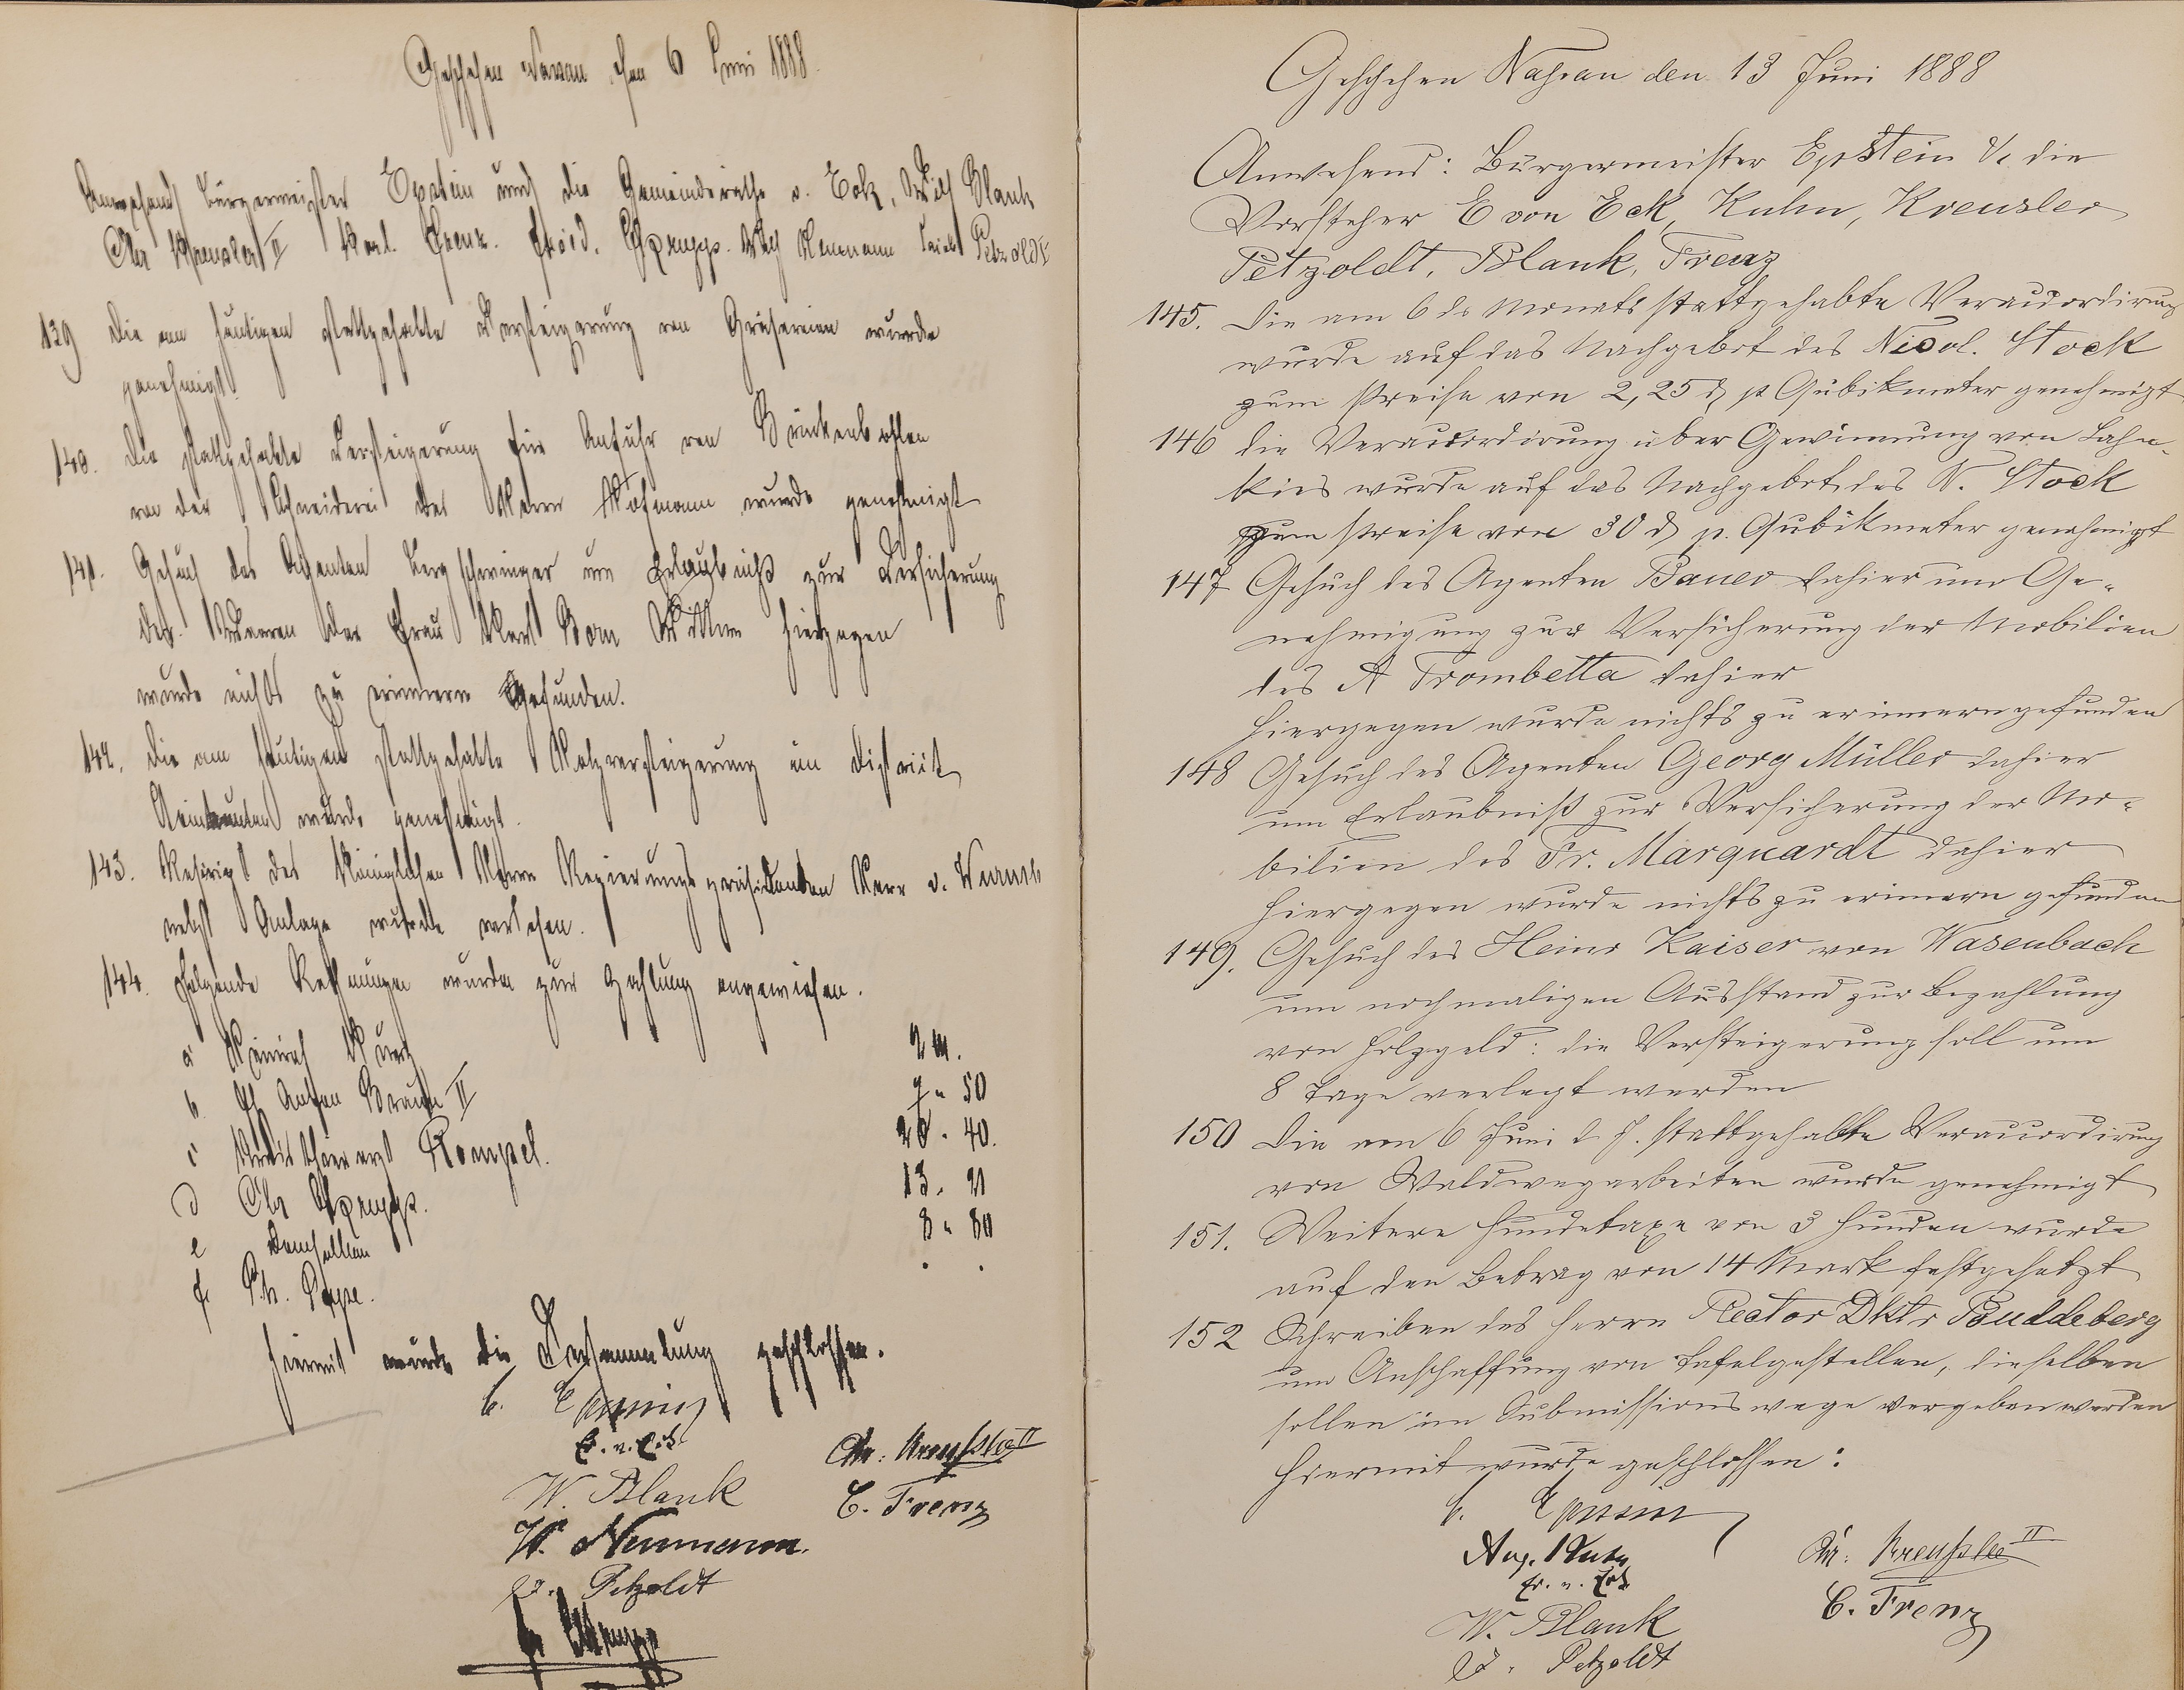 Geschehen Nassau den 6 Juni 1888.
Anwesend Bürgermeister Epstein und die Gemeinderäthe v. Eck, Wilh Blank
Chr Kreusler II Karl Frenz. Fried. Wilh Neumann Petzoldt
139 Die am heutigen stattgehabte Versteigerung von Gräsereien wurde
genehmigt.
140. Die stattgehabte Versteigerung für Anfuhr von Brückenbohlen
von der Schneiderei des Herrn Hofmann wurde genehmigt
141. Gesuch des Agenten um Erlaubniß zur Versicherung
der Waaren der Frau Karl Born hiergegen
wurde nichts zu erinnern gefunden.
142. Die am heutigen stattgehabte Holzversteigerung im District
wurde genehmigt.
143. Rescript des Königlichen Herrn Regierungspräsidenten Herr v. Wurmb
nebst Anlage wurde verlesen.
144. Folgende Rechnungen wurden zur Zahlung angewiesen.
a Heinrich Kurz 2 M.
b. Anton Braun II 7 " 50
c Kreisthierarzt Rompel. 26 . 40.
d Chr 13. 21
e Demselben 8 " 80
f. Ph. Pape. . .
Hiermit wurde die Versammlung geschlossen.
C. Epstein
E. v. Eck Chr. Kreusler II
W. Blank C. Frenz
W. Neumann.
J. Petzoldt
Geschehen Nassau den 13 Juni 1888
Anwesend: Bürgermeister Epstein & die
Vorsteher E von Eck, Kuhn, Kreusler
Petzoldt, Blank, Frenz
145. Die am 6 ds Monats stattgehabte Veraccordirung
wurde auf das Nachgebot des Nicol. Stock
zum Preise von 2,25 d p Qubikmeter genehmigt
146 die Veraccordirung über Gewinnung von Lahn-
kies wurde auf das Nachgebot des N. Stock
zum Preise von 30 d p. Qubikmeter genehmigt
147 Gesuch des Agenten Bauer dahier um Ge-
nehmigung zur Versicherung der Mobilien
des A Trombetta dahier
hiergegen wurde nichts zu erinnern gefunden
148 Gesuch des Agenten Georg Müller dahier
um Erlaubniß zur Versicherung der Mo-
bilien des Fr. Marquardt dahier
hiergegen wurde nichts zu erinnern gefunden
149. Gesuch des Heinr Kaiser von Wasenbach
um nochmaligen Ausstand zur Bezahlung
von Holzgeld: die Versteigerung soll um
8 Tage verlegt werden
150 Die vom 6 Juni d J. stattgehabte Veraccordirung
von Waldwegarbeiten wurde genehmigt
151. Weitere Hundetaxe von 3 Hunden wurde
auf den Betrag von 14 Mark festgesetzt
152 Schreiben des Herrn Rector Dktr Buddeberg
um Anschaffung von Tafelgestellen, dieselben
sollen im Submissionswege vergeben werden
Hiermit wurde geschlossen:
C. Epstein
Aug. Kuhn Chr. Kreusler II
E. v. Eck
W. Blank C. Frenz
J. Petzoldt